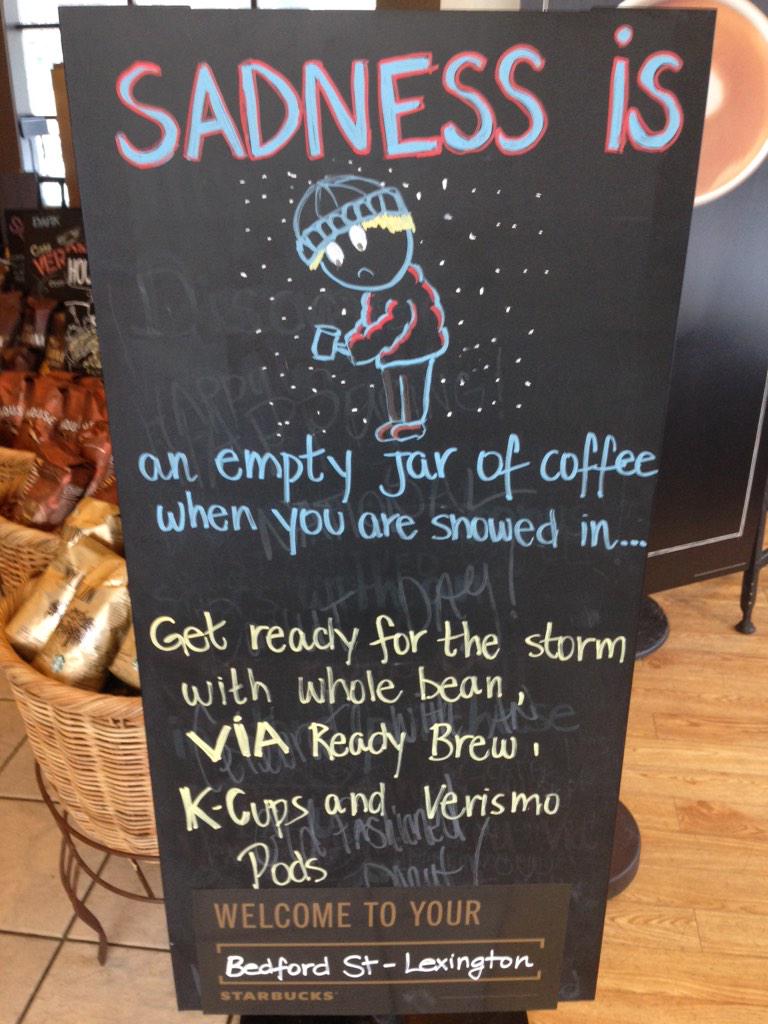 SADNESS is
an empty jar of coffee
when you are snowed in...
Get ready for the storm
with whole bean,
VIA Ready Brew,
K-Cups and Verismo
Pods
WELCOME TO YOUR
Bedford St - Lexington
STARBUCKS
DARK